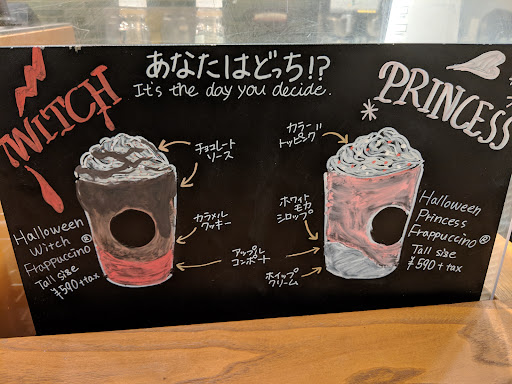 あなたはどっち!?
It's the day you decide.
WITCH
チョコレート
ソース
カラメル
クッキー
アップル
コンポート
Halloween
Witch
Frappuccino®
Tall size
¥590+tax
PRINCESS
カラー
トッピング
ホワイト
モカ
シロップ
ホイップ
クリーム
Halloween
Princess
Frappuccino®
Tall size
¥590+tax